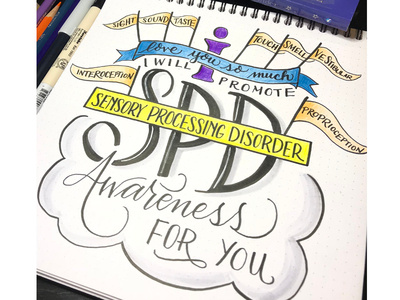 SIGHT SOUND TASTE
TOUCH SMELL VESTIBULAR
i
love you so much
INTEROCEPTION
I WILL PROMOTE
PROPRIOCEPTION
SPD
SENSORY PROCESSING DISORDER
Awareness
FOR YOU